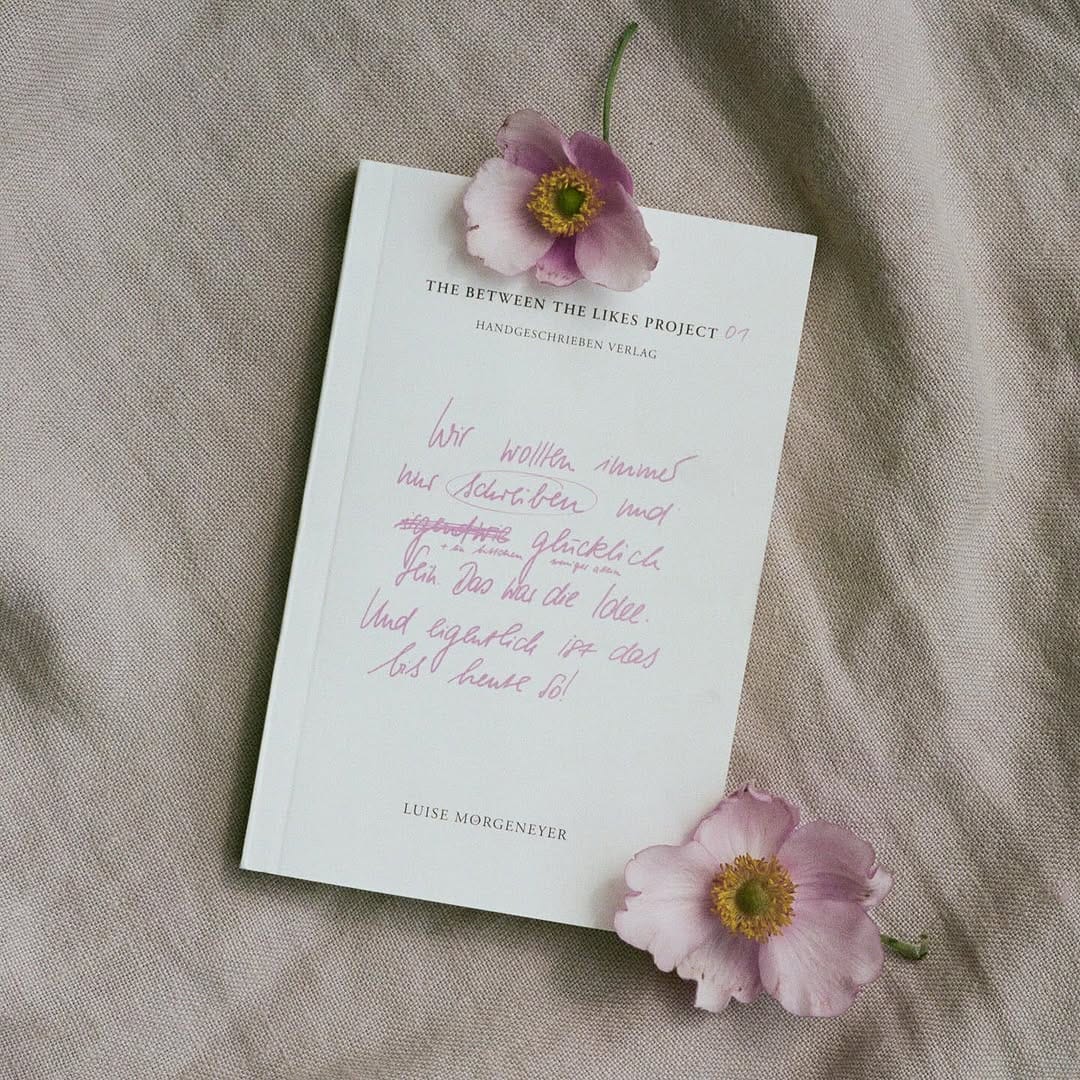 THE BETWEEN THE LIKES PROJECT 01
HANDGESCHRIEBEN VERLAG
Wir wollten immer
nur schreiben und
irgendwie glücklich
+ ein bisschen weniger allein
sein. Das war die Idee.
Und eigentlich ist das
bis heute so!
LUISE MØRGENEYER